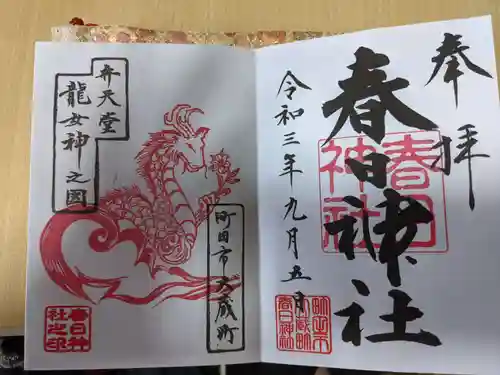 奉拝
春日神社
春日
神社
令和三年九月五日
町田市
大蔵町
春日神社
弁天堂
龍女神之図
町田市大蔵町
春日神
社之印